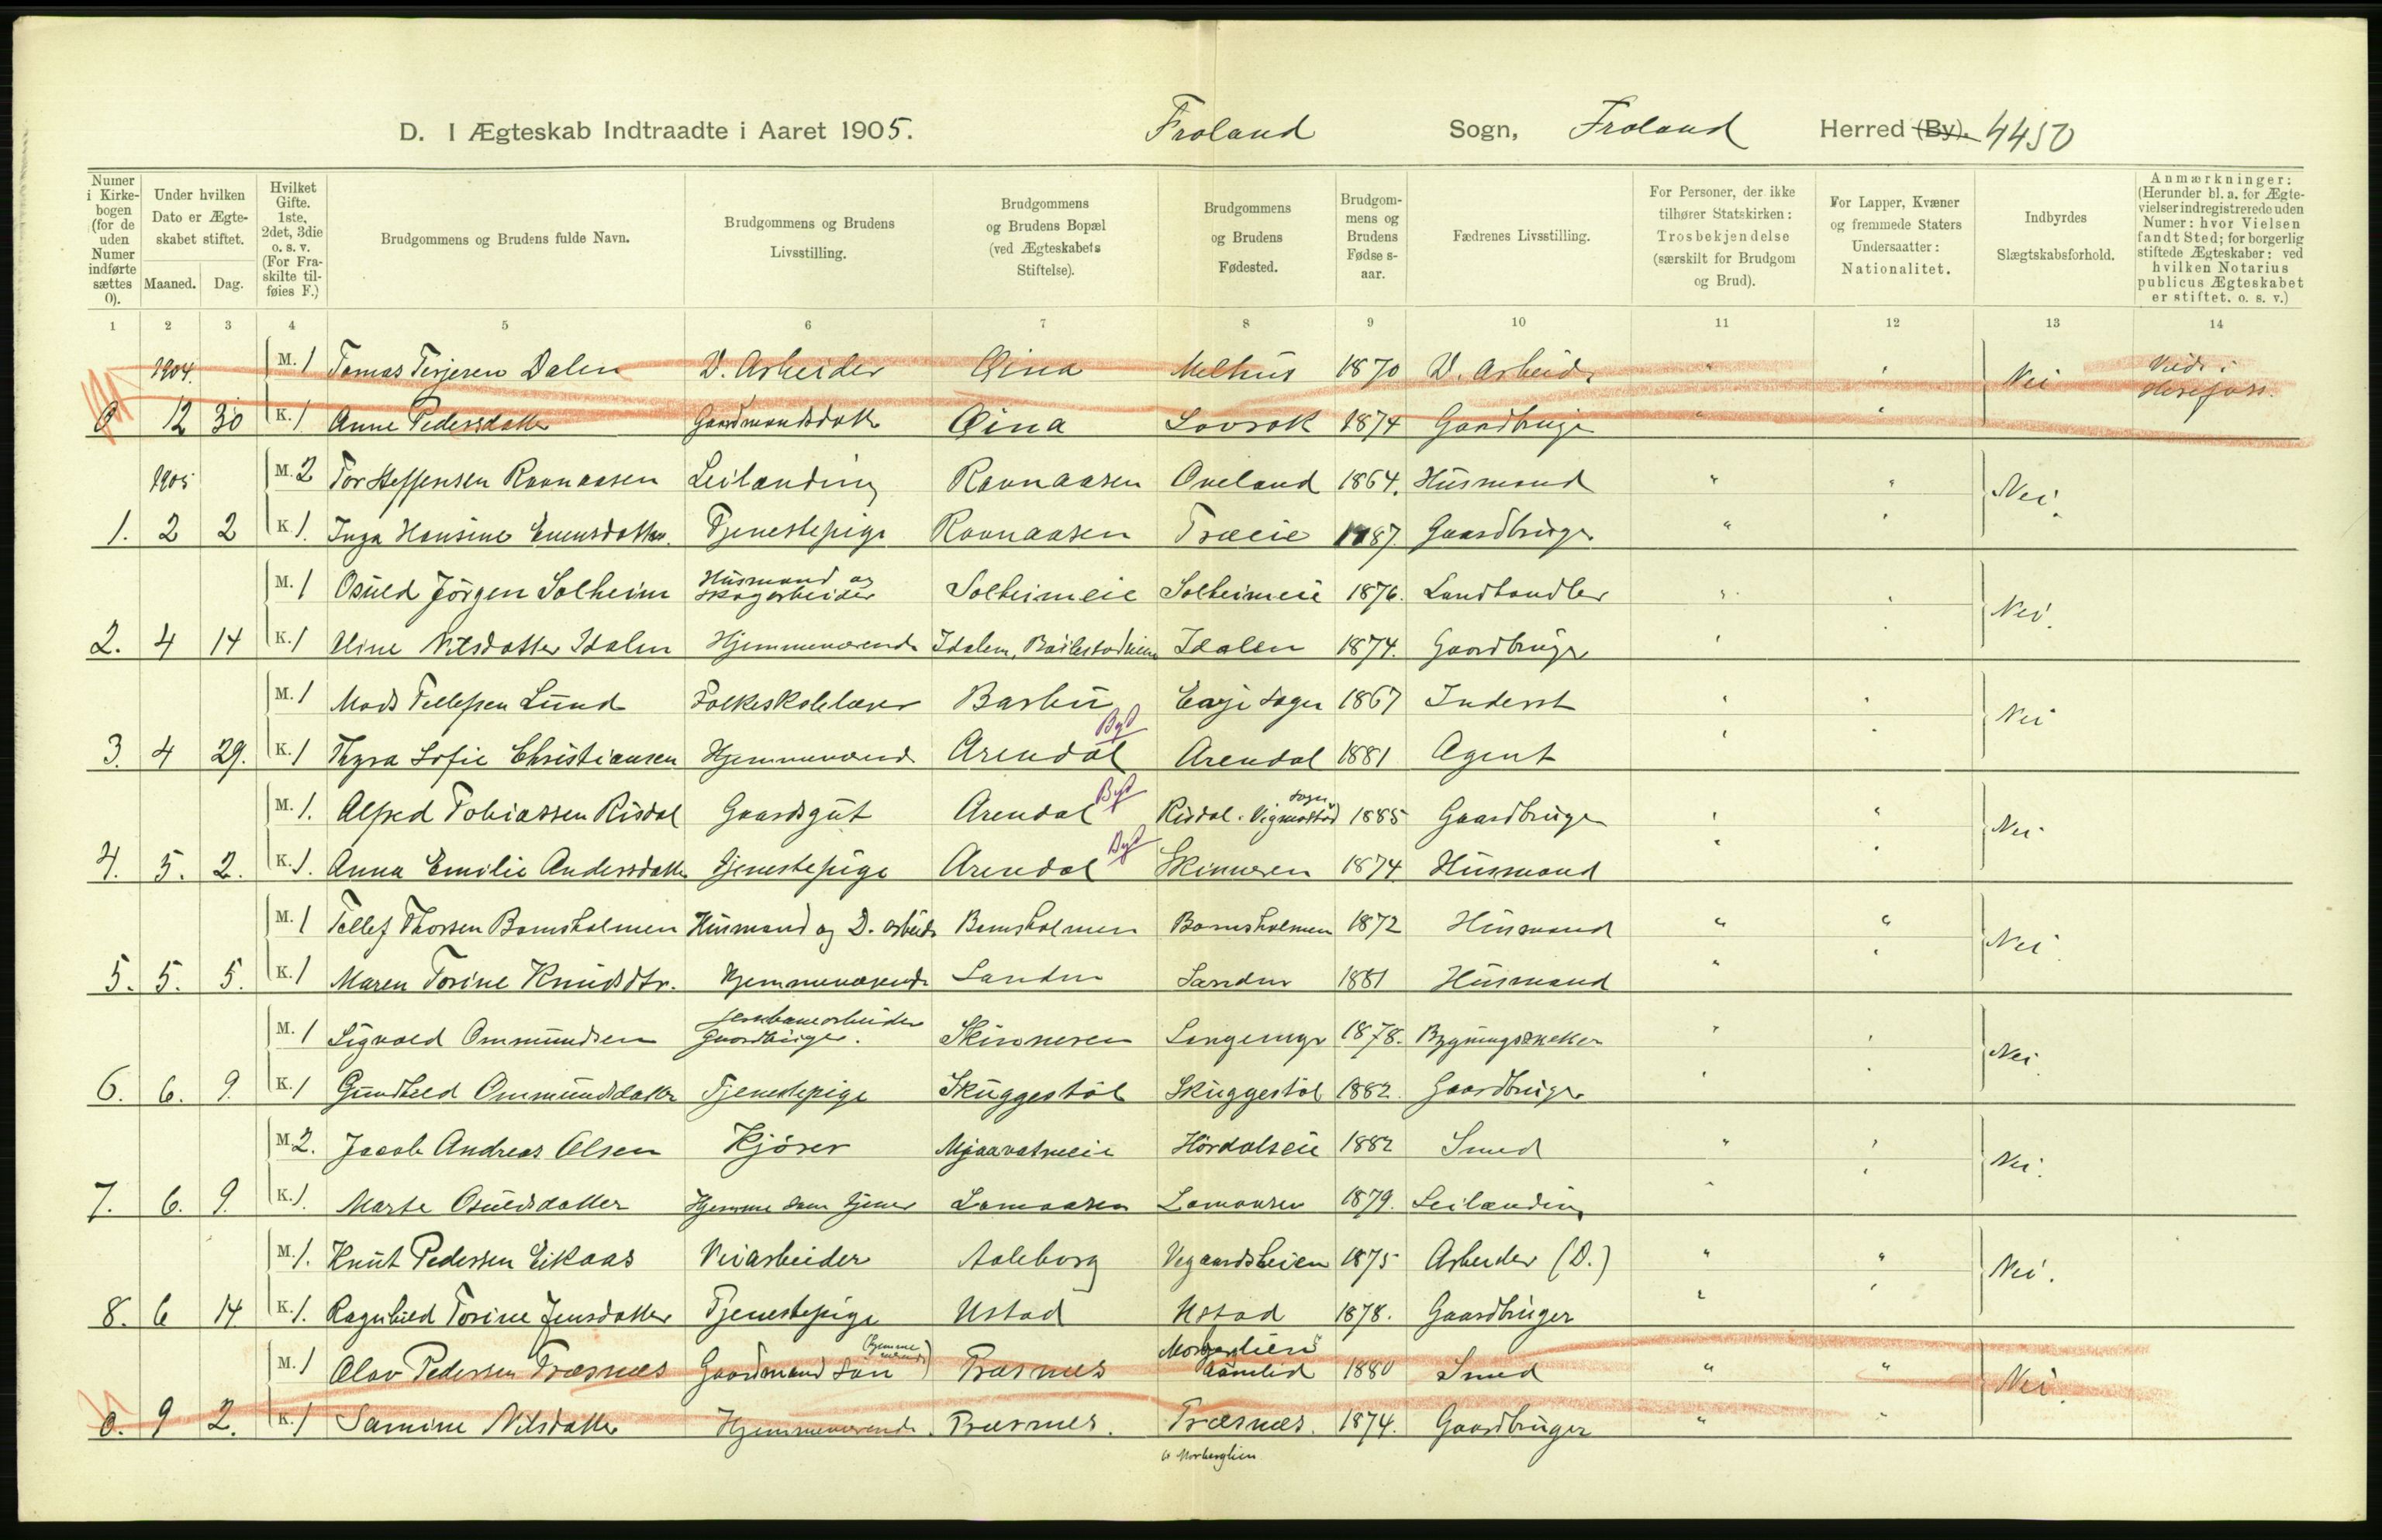 D. I Ægteskab Indtraadte i Aaret 1905. Froland Sogn, Froland Herred (By). 4450
Numer i Kirkebogen (for de uden Numer indførte sættes 0).
Under hvilken Dato er Ægteskabet stiftet.
Maaned. Dag.
Hvilket Gifte. 1ste, 2det, 3die o. s. v. (For Fraskilte tilføies F.)
Brudgommens og Brudens fulde Navn.
Brudgommens og Brudens Livsstilling.
Brudgommens og Brudens Bopæl (ved Ægteskabets Stiftelse).
Brudgommens og Brudens Fødested.
Brudgommens og Brudens Fødselsaar.
Fædrenes Livsstilling.
For Personer, der ikke tilhører Statskirken: Trosbekjendelse (særskilt for Brudgom og Brud).
For Lapper, Kvæner og fremmede Staters Undersaatter: Nationalitet.
Indbyrdes Slægtskabsforhold.
Anmærkninger: (Herunder bl. a. for Ægtevielser indregistrerede uden Numer: hvor Vielsen fandt Sted; for borgerlig stiftede Ægteskaber: ved hvilken Notarius publicus Ægteskabet er stiftet. o. s. v.)
1 2 3 4 5 6 7 8 9 10 11 12 13 14
1904. M. 1 Tomas Terjesen Dalen D. Arbeider Øina Melhus 1870 D. Arbeid. " " Nei Viede i Herefoss.
0 12 30 K. 1 Anne Pedersdatter Gaardmandsdatt. Øina Lovrak 1874 Gaardbruger " "
1905 M. 2 Tor Steffensen Ravnaasen Leilænding Ravnaasen Oveland 1864. Husmand " " Nei.
1. 2 2 K. 1. Inga Hansine Evensdatter. Tjenestepige Ravnaasen Træeie 1887. Gaardbruger. " "
M. 1 Osuld Jörgen Solheim Husmand og Skogarbeider Solheimeie Solheimeie 1876. Landhandler " " Nei.
2. 4 14 K. 1 Oline Nilsdatter Idalen Hjemmeværende Idalen, Idalen 1874. Gaardbruger " "
M. 1 Mads Tellefsen Lund Folkeskolelærer Barbu Eajs Sogn 1867 Inderst " " Nei
3. 4 29. K. 1 Thyra Sofie Christiansen Hjemmeværend. Arendal Byd Arendal 1881 Agent " "
M. 1. Alfred Tobiassen Risdal Gaardsgut Arendal Byd Risdal. Vigmostad Sogn 1885 Gaardbruger " " Nei
4. 5. 2. K. 1. Anna Emilie Andersdatter Tjenestepige Arendal Byd Skinneren 1874 Husmand " "
M. 1 Tellef Thorsen Bomsholmen Husmand og D. arbeid. Bomsholmen Bomsholmen 1872 Husmand " " Nei
5. 5. 5. K. 1 Maren Torine Knudsdtr. Hjemmeværende Landur Landur 1881 Husmand " "
M. 1 Sigvald Ommundsen Jernbanearbeider Gaardbruger. Skinneren Langemyr 1878. Bygningssnekker " " Nei.
6. 6. 9. K. 1 Gundhild Ommundsdatter Tjenestepige Skuggestöl Skuggestöl 1882. Gaardbruger " "
M. 2. Jacob Andreas Olsen Kjörer Mjaavatneie Hördalseie 1882 Smed " " Nei.
7. 6. 9. K. 1. Marte Osuldsdatter Hjemme som tjener Lomaasen Lomaasen 1879. Leilænding "
M. 1. Knut Pedersen Eikaas Veiarbeider Aaleborg Vegaardsheien 1875 Arbeider (D.) " " Nei.
8. 6 14 K. 1. Ragnhild Torine Jensdatter Tjenestepige Ustad Ustad 1878. Gaardbruger " "
M. 1 Olav Pedersen Træsnes Gaardmand sön (hjemmeværende) Træsnes Morberglien Aamlid 1880 Smed " " Nei.
0. 9 2. K. 1 Samine Nilsdatter Hjemmeværende. Træsnes. Træsnes. 1874. Gaardbruger " "
Morberglien